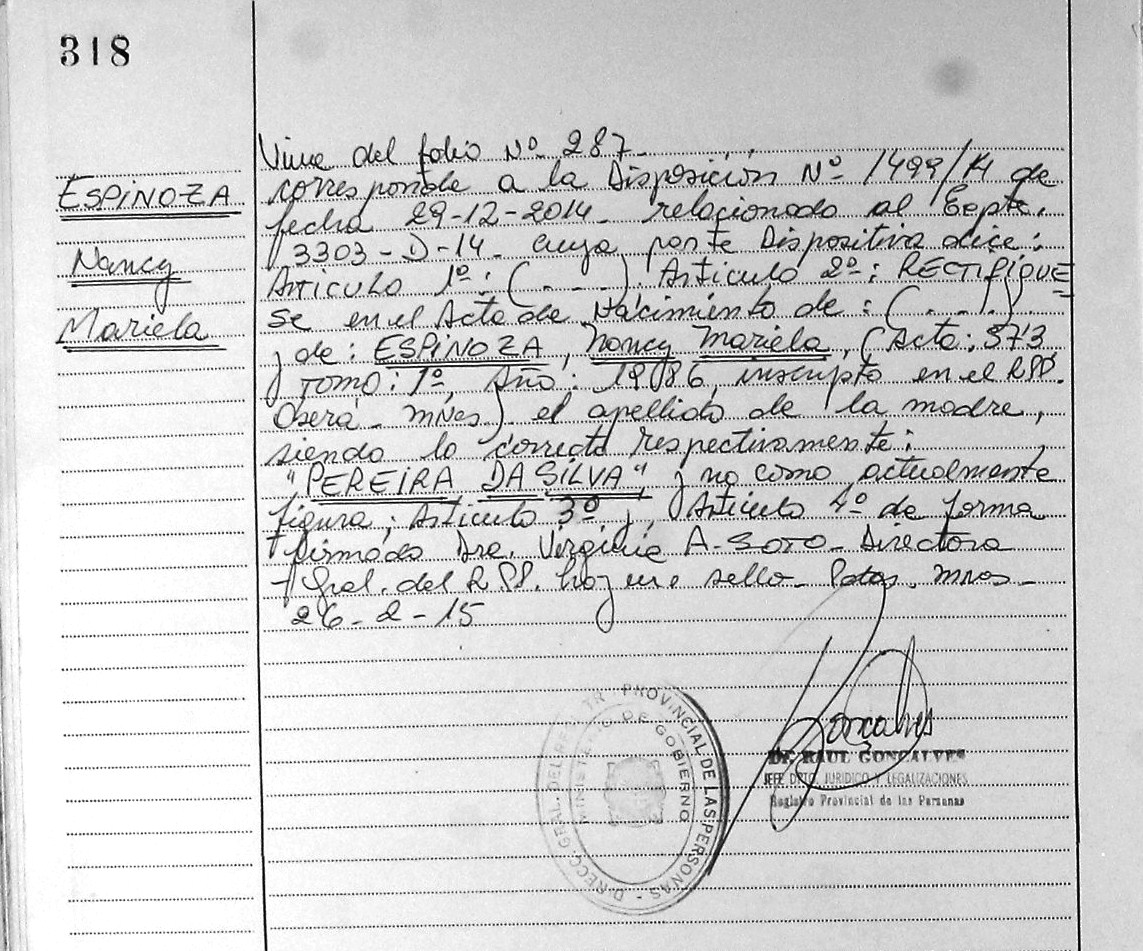 318
ESPINOZA
Nancy
Mariela
Viene del folio Nº 287.
corresponde a la Disposición Nº 1499/14 de
fecha 29-12-2014. relacionado al Expte.
3303-D-14. cuya parte Dispositiva dice:
Articulo 1º: (....). Articulo 2º: RECTIFÍQUE
se en el Acta de Nacimiento de: (....)
y de: ESPINOZA, Nancy Mariela, (Acta: 573
Tomo: 1º, Año: 1986, inscripta en el RPP.
Oberá - mnes) el apellido de la madre,
siendo lo correcto respectivamente:
"PEREIRA DA SILVA" y no como actualmente
figura; Articulo 3º y Articulo 4º de forma
firmado Dra. Virginia A. SOTO - Directora
Gral. del RPP. hay un sello - Pdas. Mnes -
26-2-15
DIRECC. GRAL. DEL REGISTR. PROVINCIAL DE LAS PERSONAS -
MINISTERIO DE GOBIERNO
Goncalves
Dr. RAUL GONCALVES
JEFE DPTO. JURIDICO Y LEGALIZACIONES
Registro Provincial de las Personas